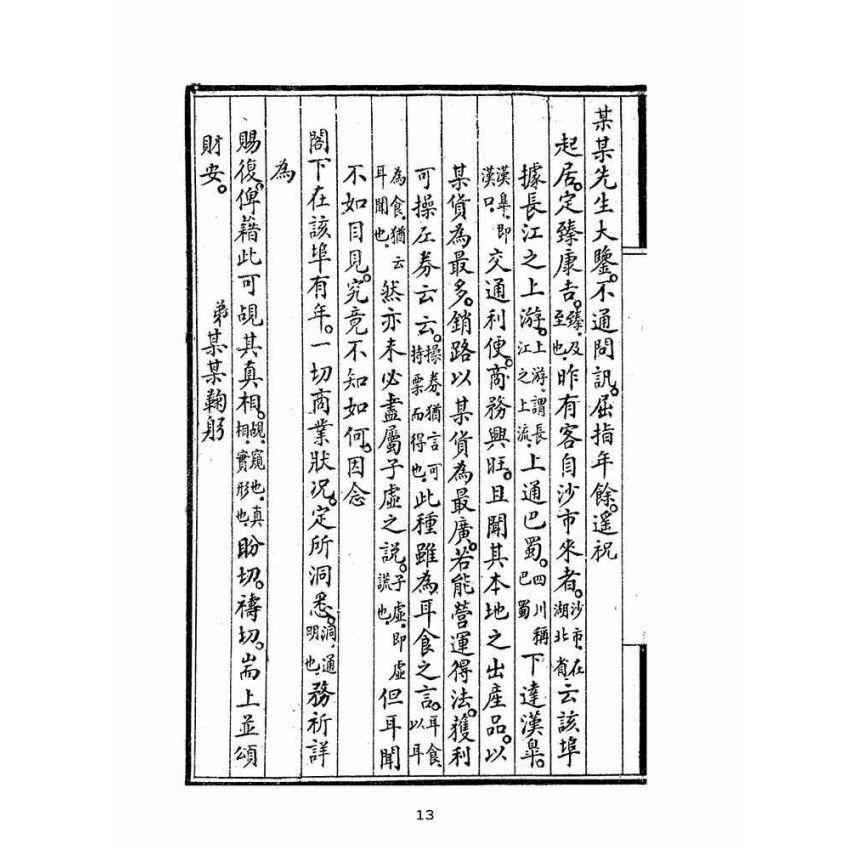 某某先生大鑒。不通問訊。屈指年餘。遙祝
起居。定臻康吉。臻、及至也。昨有客自沙市來者。沙市、在湖北省。云該埠
據長江之上游。上游、謂長江之上流。上通巴蜀。四川稱巴蜀。下達漢臯。
漢臯、即漢口。交通利便。商務興旺。且聞其本地之出產品。以
某貨為最多。銷路以某貨為最廣。若能營運得法。獲利
可操左券云云。操券、猶言可持票而得也。此種雖為耳食之言。耳食、以耳
為食、猶云耳聞也。然亦未必盡屬子虛之說。子虛、即虛謊也。但耳聞
不如目見。究竟不知如何。因念
閣下在該埠有年。一切商業狀况。定所洞悉。洞、通明也。務祈詳
為
賜復。俾藉此可覘其真相。覘、窺也、真相、實形也。盼切。禱切。耑上並頌
財安。
弟某某鞠躬
13